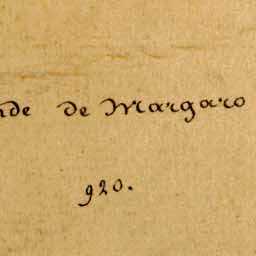 de de Margaro
920.